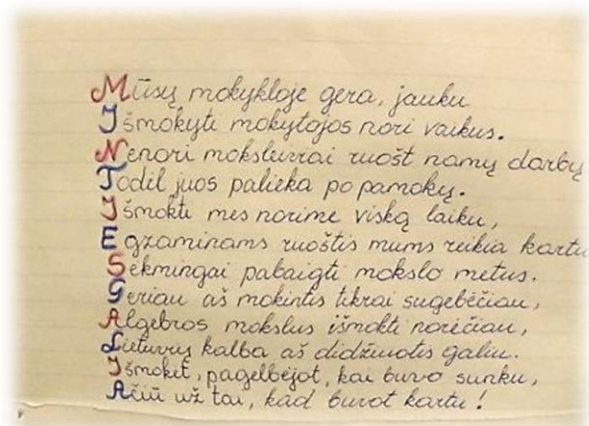 Mūsų mokykloje gera, jauku
Išmokyti mokytojos nori vaikus.
Nenori moksleiviai ruošt namų darbų
Todėl juos palieka po pamokų.
Išmokti mes norime viską laiku,
Egzaminams ruoštis mums reikia kartu
Sėkmingai pabaigti mokslo metus.
Geriau aš mokintis tikrai sugebėčiau,
Algebros mokslus išmokti norėčiau,
Lietuvių kalba aš didžiuotis galiu.
Išmokėt, pagelbėjot, kai buvo sunku,
Ačiū už tai, kad buvot kartu!